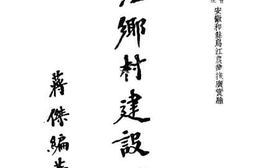 安徽和縣烏江農業推廣實驗
江鄉村建設
蔣傑編著